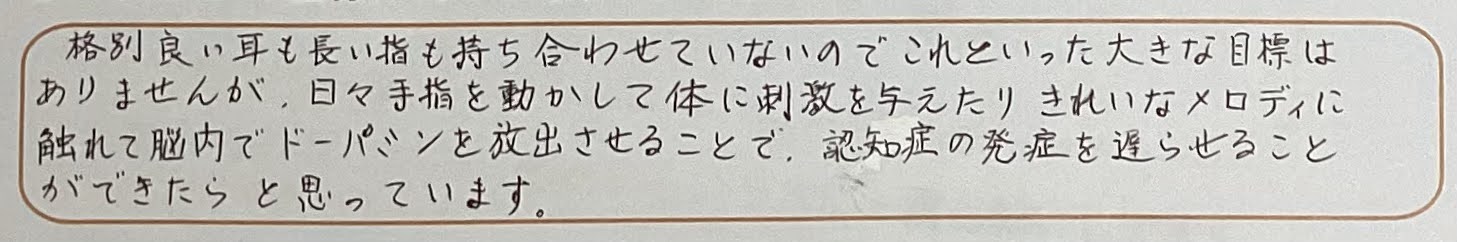 格別良い耳も長い指も持ち合わせていないのでこれといった大きな目標は
ありませんが、日々手指を動かして体に刺激を与えたりきれいなメロディに
触れて脳内でドーパミンを放出させることで、認知症の発症を遅らせること
ができたらと思っています。